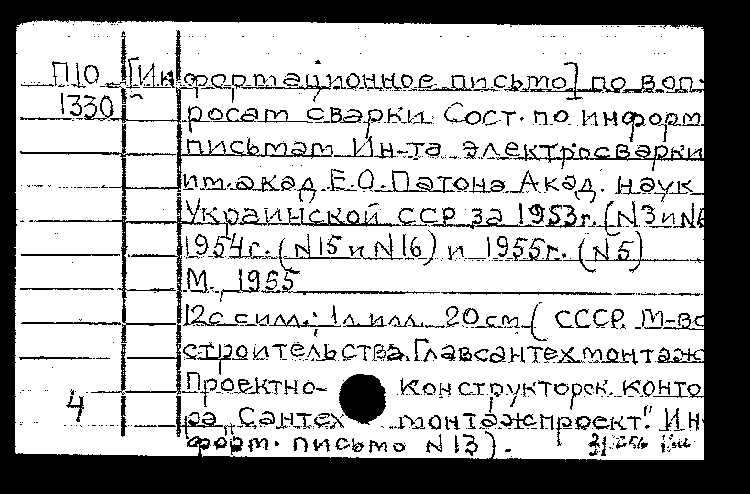 П10 [Информационное письмо] по воп-
1330 росам сварки. Сост. по информ
письмам Ин-та электросварки
им. акад Е.О.Патона Акад. наук
Украинской ССР за 1953г. (N3 и N6
1954г. (N15 и N16) и 1955г. (N5)
М., 1955
12с с илл.; 1л. илл. 20см (СССР. М-во
строительства. Главсантехмонтаж
Проектно- конструкторск. конто
4 ра "Сантех монтажпроект". Ин-
форм. письмо N13).